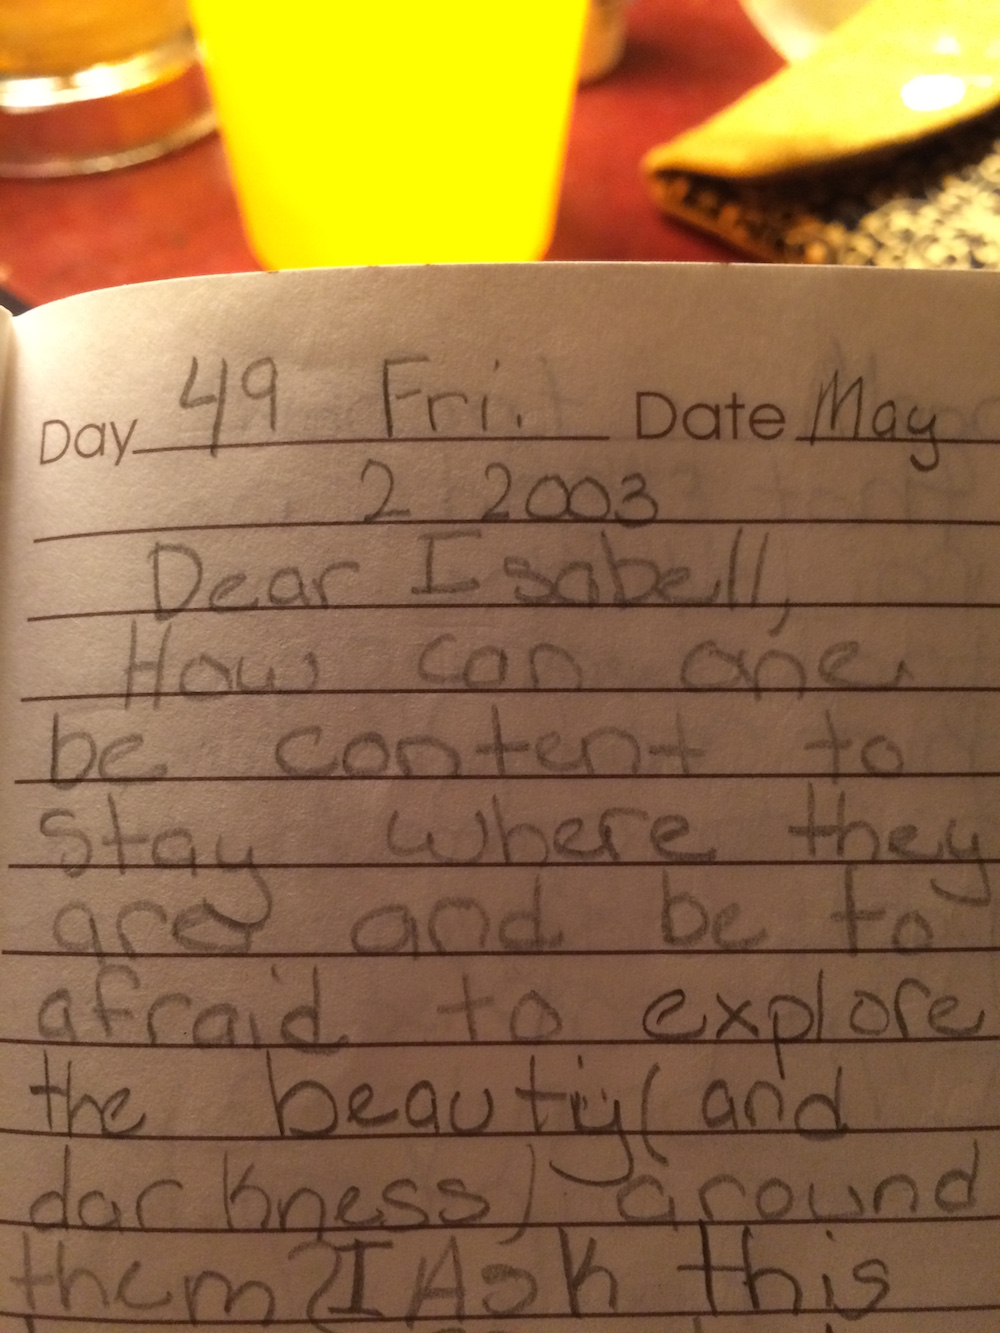 Day 49 Fri. Date May
2 2003
Dear Isabell,
How can one
be content to
stay where they
are and be to
afraid to explore
the beautiy (and
darkness) around
them? I Ask this